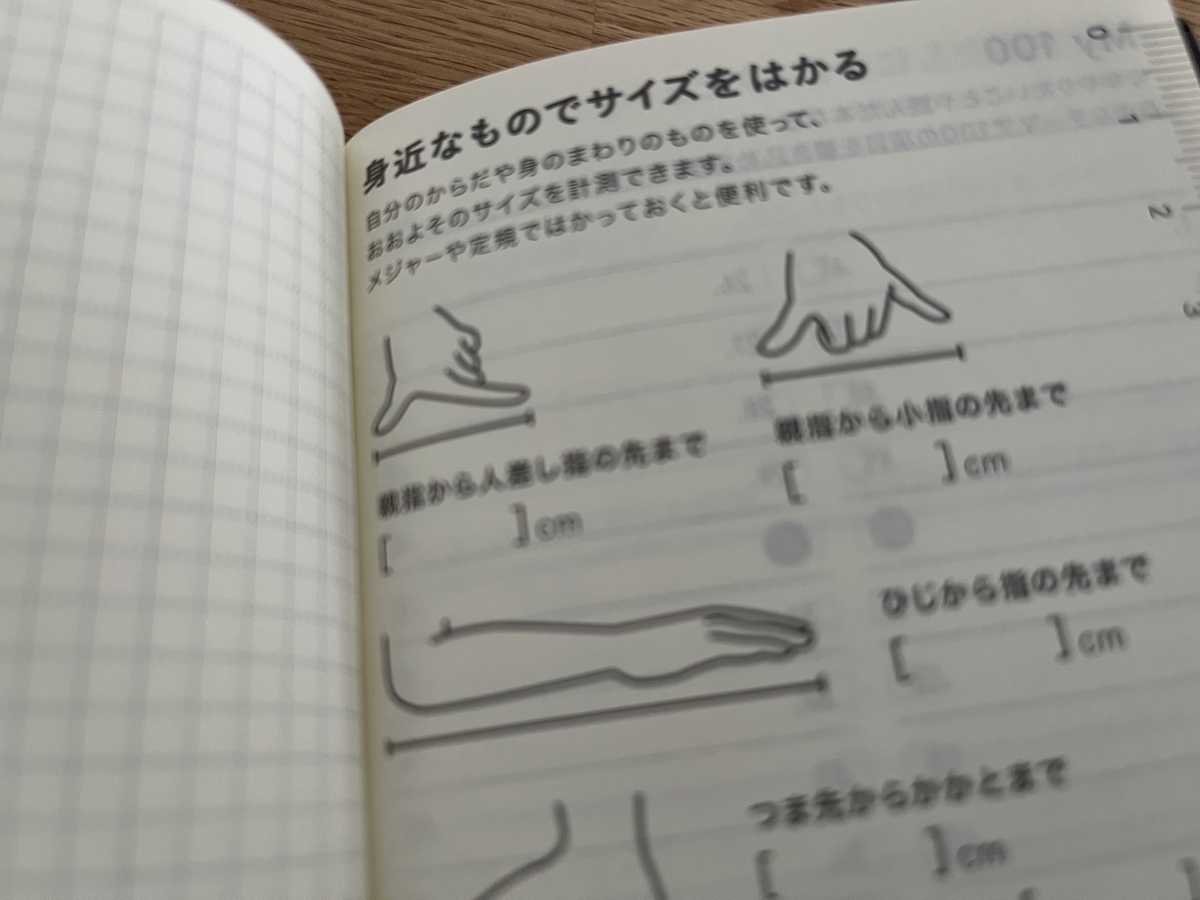 身近なものでサイズをはかる
自分のからだや身のまわりのものを使って、
おおよそのサイズを計測できます。
メジャーや定規ではかっておくと便利です。
親指から人差し指の先まで
[ ]cm
親指から小指の先まで
[ ]cm
ひじから指の先まで
[ ]cm
つま先からかかとまで
[ ]cm
0
1
2
3
My 100